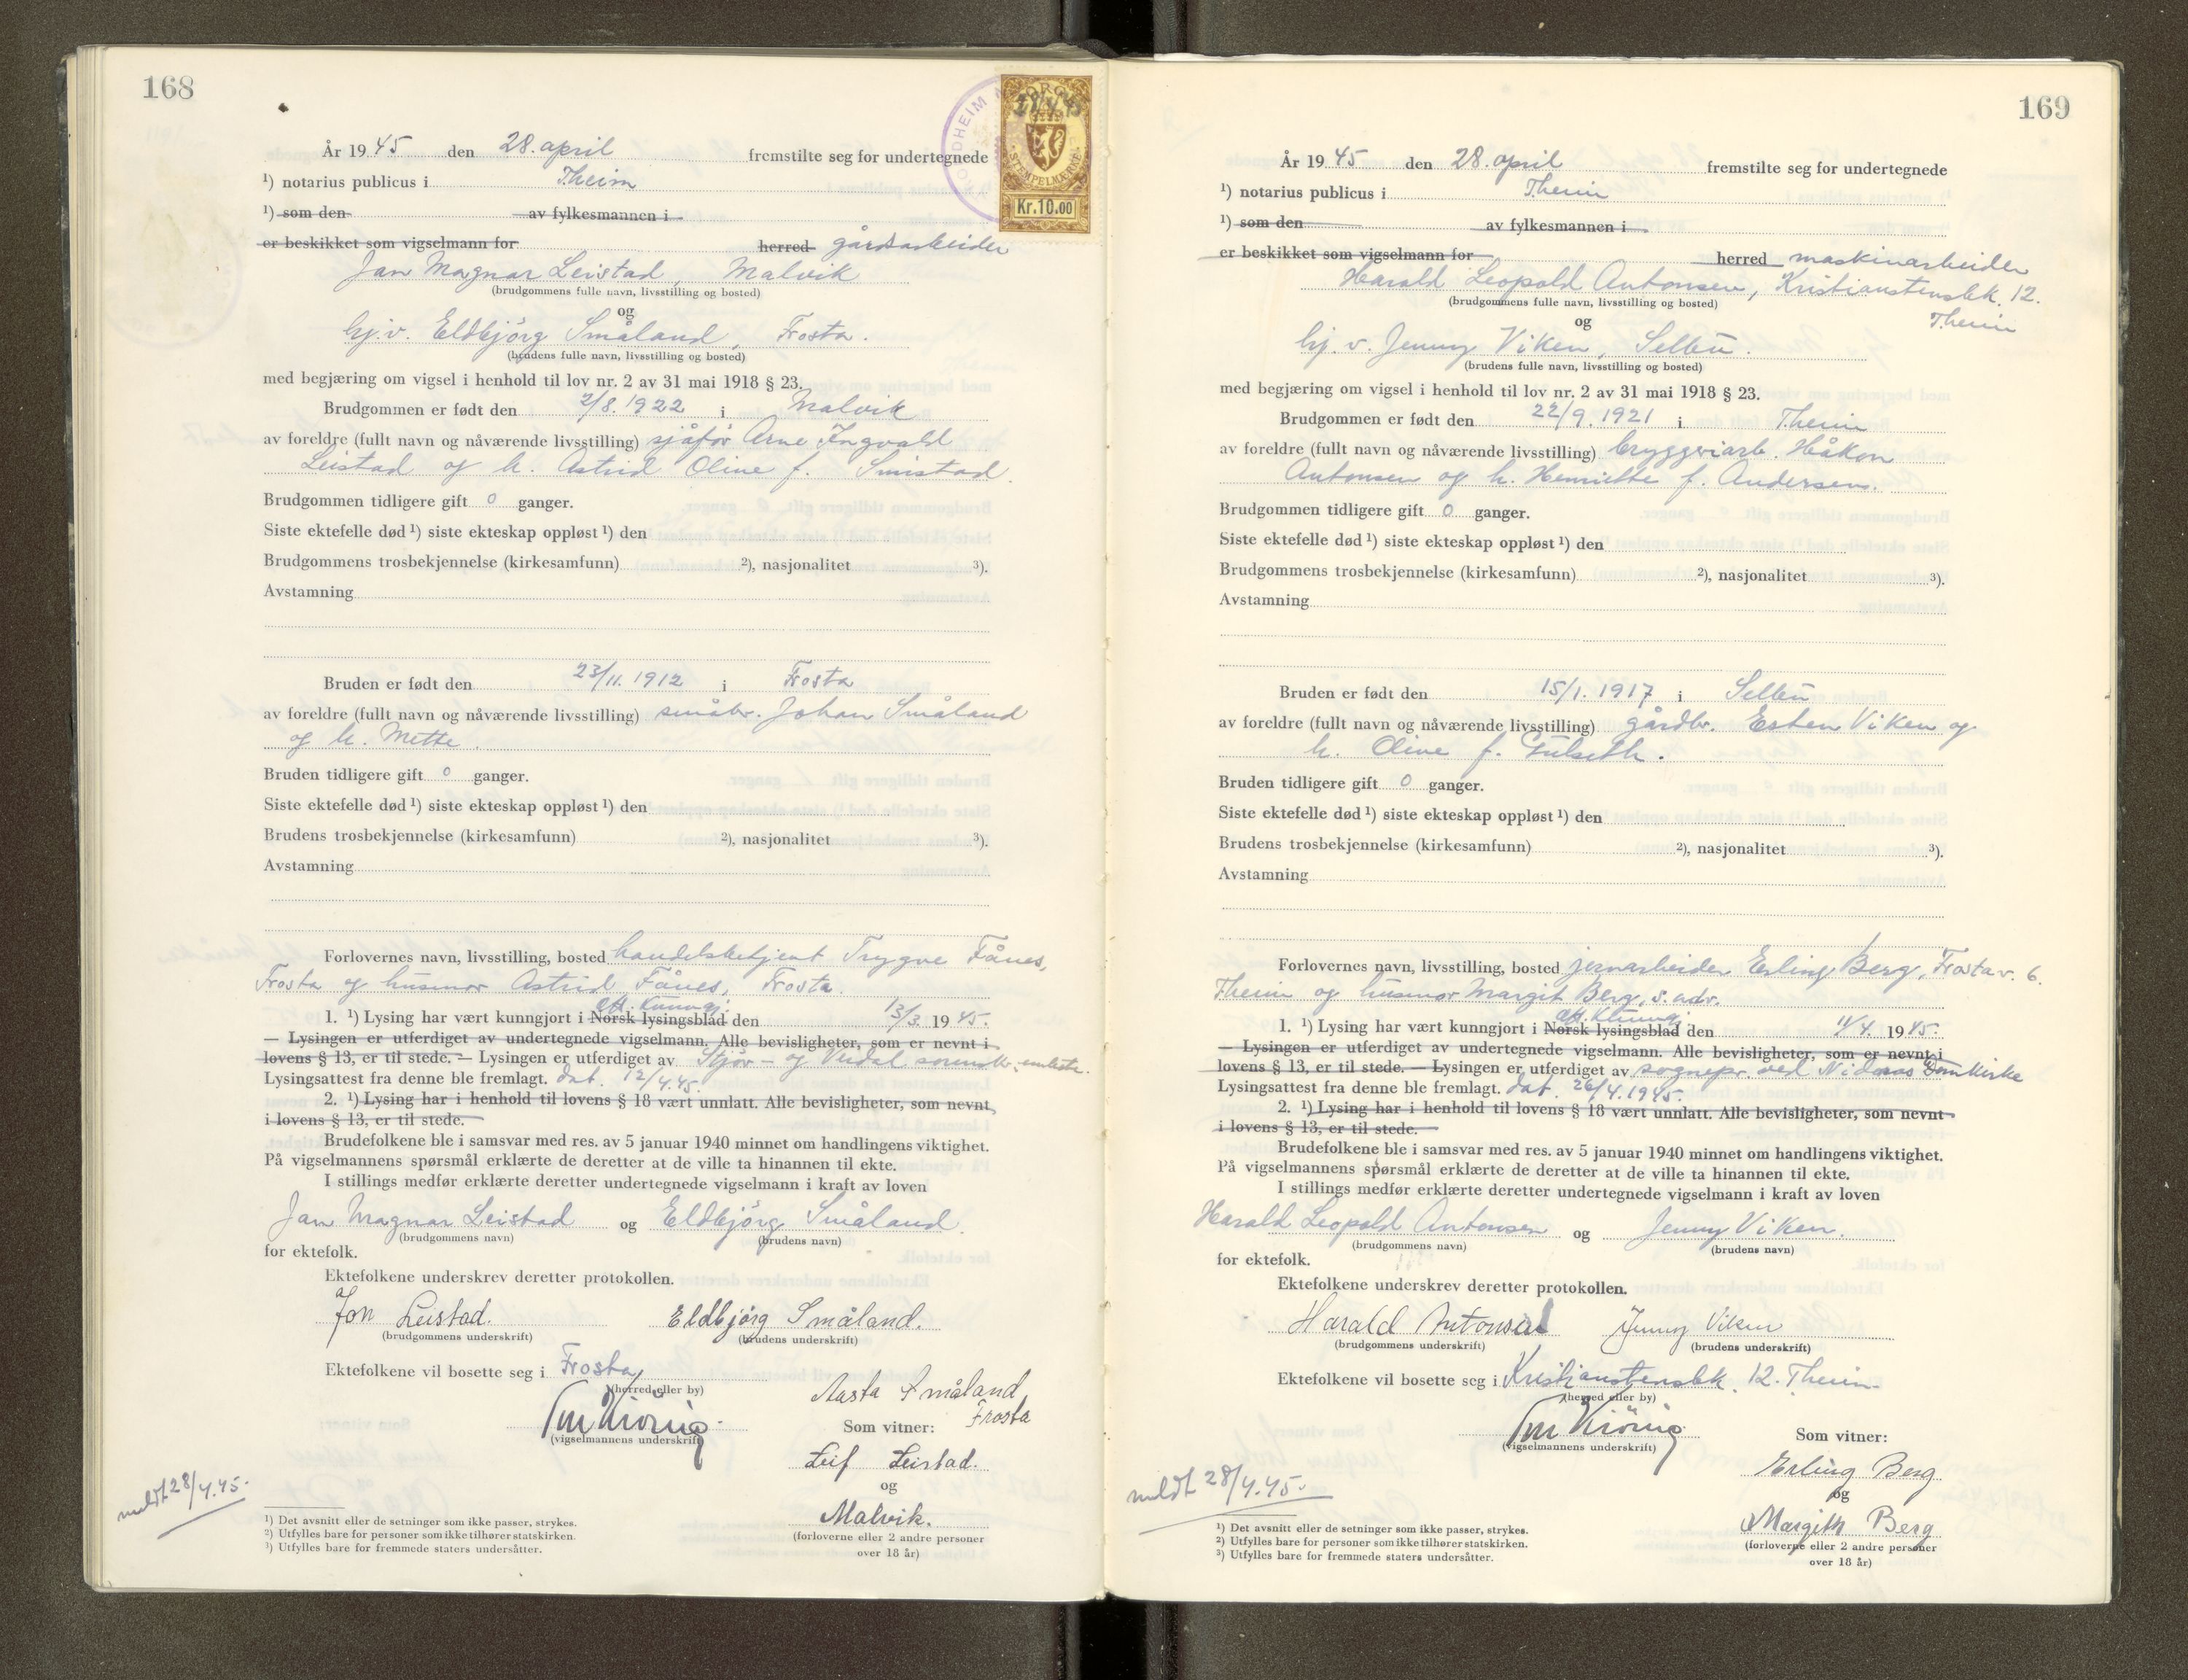 168
År 19 45 den 28. april fremstilte seg for undertegnede
¹) notarius publicus i Theim
¹) som den av fylkesmannen i
er beskikket som vigselmann for herred gårdsarbeider
Jan Magnar Leistad, Malvik
(brudgommens fulle navn, livsstilling og bosted)
og
hj.v. Eldbjörg Småland, Frosta.
(brudens fulle navn, livsstilling og bosted)
med begjæring om vigsel i henhold til lov nr. 2 av 31 mai 1918 § 23.
Brudgommen er født den 2/8. 1922 i Malvik
av foreldre (fullt navn og nåværende livsstilling) sjåför Arne Ingvald
Leistad og h. Astrid Oline f. Smistad.
Brudgommen tidligere gift 0 ganger.
Siste ektefelle død ¹) siste ekteskap oppløst ¹) den
Brudgommens trosbekjennelse (kirkesamfunn) ²), nasjonalitet ³).
Avstamning
Bruden er født den 23/11. 1912 i Frosta
av foreldre (fullt navn og nåværende livsstilling) småbr. Johan Småland
og h. Mette.
Bruden tidligere gift 0 ganger.
Siste ektefelle død ¹) siste ekteskap oppløst ¹) den
Brudens trosbekjennelse (kirkesamfunn) ²), nasjonalitet ³).
Avstamning
Forlovernes navn, livsstilling, bosted handelsbetjent Trygve Fånes,
Frosta og husmor Astrid Fånes, Frosta.
off. kunngj.
1. ¹) Lysing har vært kunngjort i Norsk lysingsblad den 13/3. 19 45.
— Lysingen er utferdiget av undertegnede vigselmann. Alle bevisligheter, som er nevnt i
lovens § 13, er til stede. — Lysingen er utferdiget av Stjør- og Verdal sorenskr. embete.
Lysingsattest fra denne ble fremlagt. dat. 12/4.45.
2. ¹) Lysing har i henhold til lovens § 18 vært unnlatt. Alle bevisligheter, som nevnt
i lovens § 13, er til stede.
Brudefolkene ble i samsvar med res. av 5 januar 1940 minnet om handlingens viktighet.
På vigselmannens spørsmål erklærte de deretter at de ville ta hinannen til ekte.
I stillings medfør erklærte deretter undertegnede vigselmann i kraft av loven
Jan Magnar Leistad og Eldbjörg Småland
(brudgommens navn) (brudens navn)
for ektefolk.
Ektefolkene underskrev deretter protokollen.
Jan Leistad. Eldbjörg Småland.
(brudgommens underskrift) (brudens underskrift)
Ektefolkene vil bosette seg i Frosta
(herred eller by)
Aasta Småland
Frosta
(vigselmannens underskrift)
Som vitner:
Leif Leistad.
og
Malvik.
(forloverne eller 2 andre personer
over 18 år)
meldt 28/4.45.
¹) Det avsnitt eller de setninger som ikke passer, strykes.
²) Utfylles bare for personer som ikke tilhører statskirken.
³) Utfylles bare for fremmede staters undersåtter.
NORGE
28/4 45
STEMPELMERKE
Kr.10.00
169
År 19 45 den 28. april fremstilte seg for undertegnede
¹) notarius publicus i Theim
¹) som den av fylkesmannen i
er beskikket som vigselmann for herred maskinarbeider
Harald Leopold Antonsen, Kristianstensbk. 12.
(brudgommens fulle navn, livsstilling og bosted) Theim
og
hj. v. Jenny Viken, Selbu.
(brudens fulle navn, livsstilling og bosted)
med begjæring om vigsel i henhold til lov nr. 2 av 31 mai 1918 § 23.
Brudgommen er født den 22/9. 1921 i Theim
av foreldre (fullt navn og nåværende livsstilling) bryggeriarb. Håkon
Antonsen og h. Henriette f. Andersen.
Brudgommen tidligere gift 0 ganger.
Siste ektefelle død ¹) siste ekteskap oppløst ¹) den
Brudgommens trosbekjennelse (kirkesamfunn) ²), nasjonalitet ³).
Avstamning
Bruden er født den 15/1. 1917 i Selbu
av foreldre (fullt navn og nåværende livsstilling) gårdbr. Esten Viken og
h. Oline f. Gulseth.
Bruden tidligere gift 0 ganger.
Siste ektefelle død ¹) siste ekteskap oppløst ¹) den
Brudens trosbekjennelse (kirkesamfunn) ²), nasjonalitet ³).
Avstamning
Forlovernes navn, livsstilling, bosted jernarbeider Erling Berg, Frostav. 6.
Theim og husmor Margit Berg, s. adr.
off. kunngj.
1. ¹) Lysing har vært kunngjort i Norsk lysingsblad den 11/4. 19 45.
— Lysingen er utferdiget av undertegnede vigselmann. Alle bevisligheter, som er nevnt i
lovens § 13, er til stede. — Lysingen er utferdiget av sognepr. ved Nidaros Domkirke
Lysingsattest fra denne ble fremlagt. dat. 26/4.1945.
2. ¹) Lysing har i henhold til lovens § 18 vært unnlatt. Alle bevisligheter, som nevnt
i lovens § 13, er til stede.
Brudefolkene ble i samsvar med res. av 5 januar 1940 minnet om handlingens viktighet.
På vigselmannens spørsmål erklærte de deretter at de ville ta hinannen til ekte.
I stillings medfør erklærte deretter undertegnede vigselmann i kraft av loven
Harald Leopold Antonsen og Jenny Viken.
(brudgommens navn) (brudens navn)
for ektefolk.
Ektefolkene underskrev deretter protokollen.
Harald Antonsen Jenny Viken
(brudgommens underskrift) (brudens underskrift)
Ektefolkene vil bosette seg i Kristianstensbk. 12. Theim
(herred eller by)
(vigselmannens underskrift)
Som vitner:
Erling Berg
og
Margith Berg
(forloverne eller 2 andre personer
over 18 år)
meldt 28/4.45.
¹) Det avsnitt eller de setninger som ikke passer, strykes.
²) Utfylles bare for personer som ikke tilhører statskirken.
³) Utfylles bare for fremmede staters undersåtter.